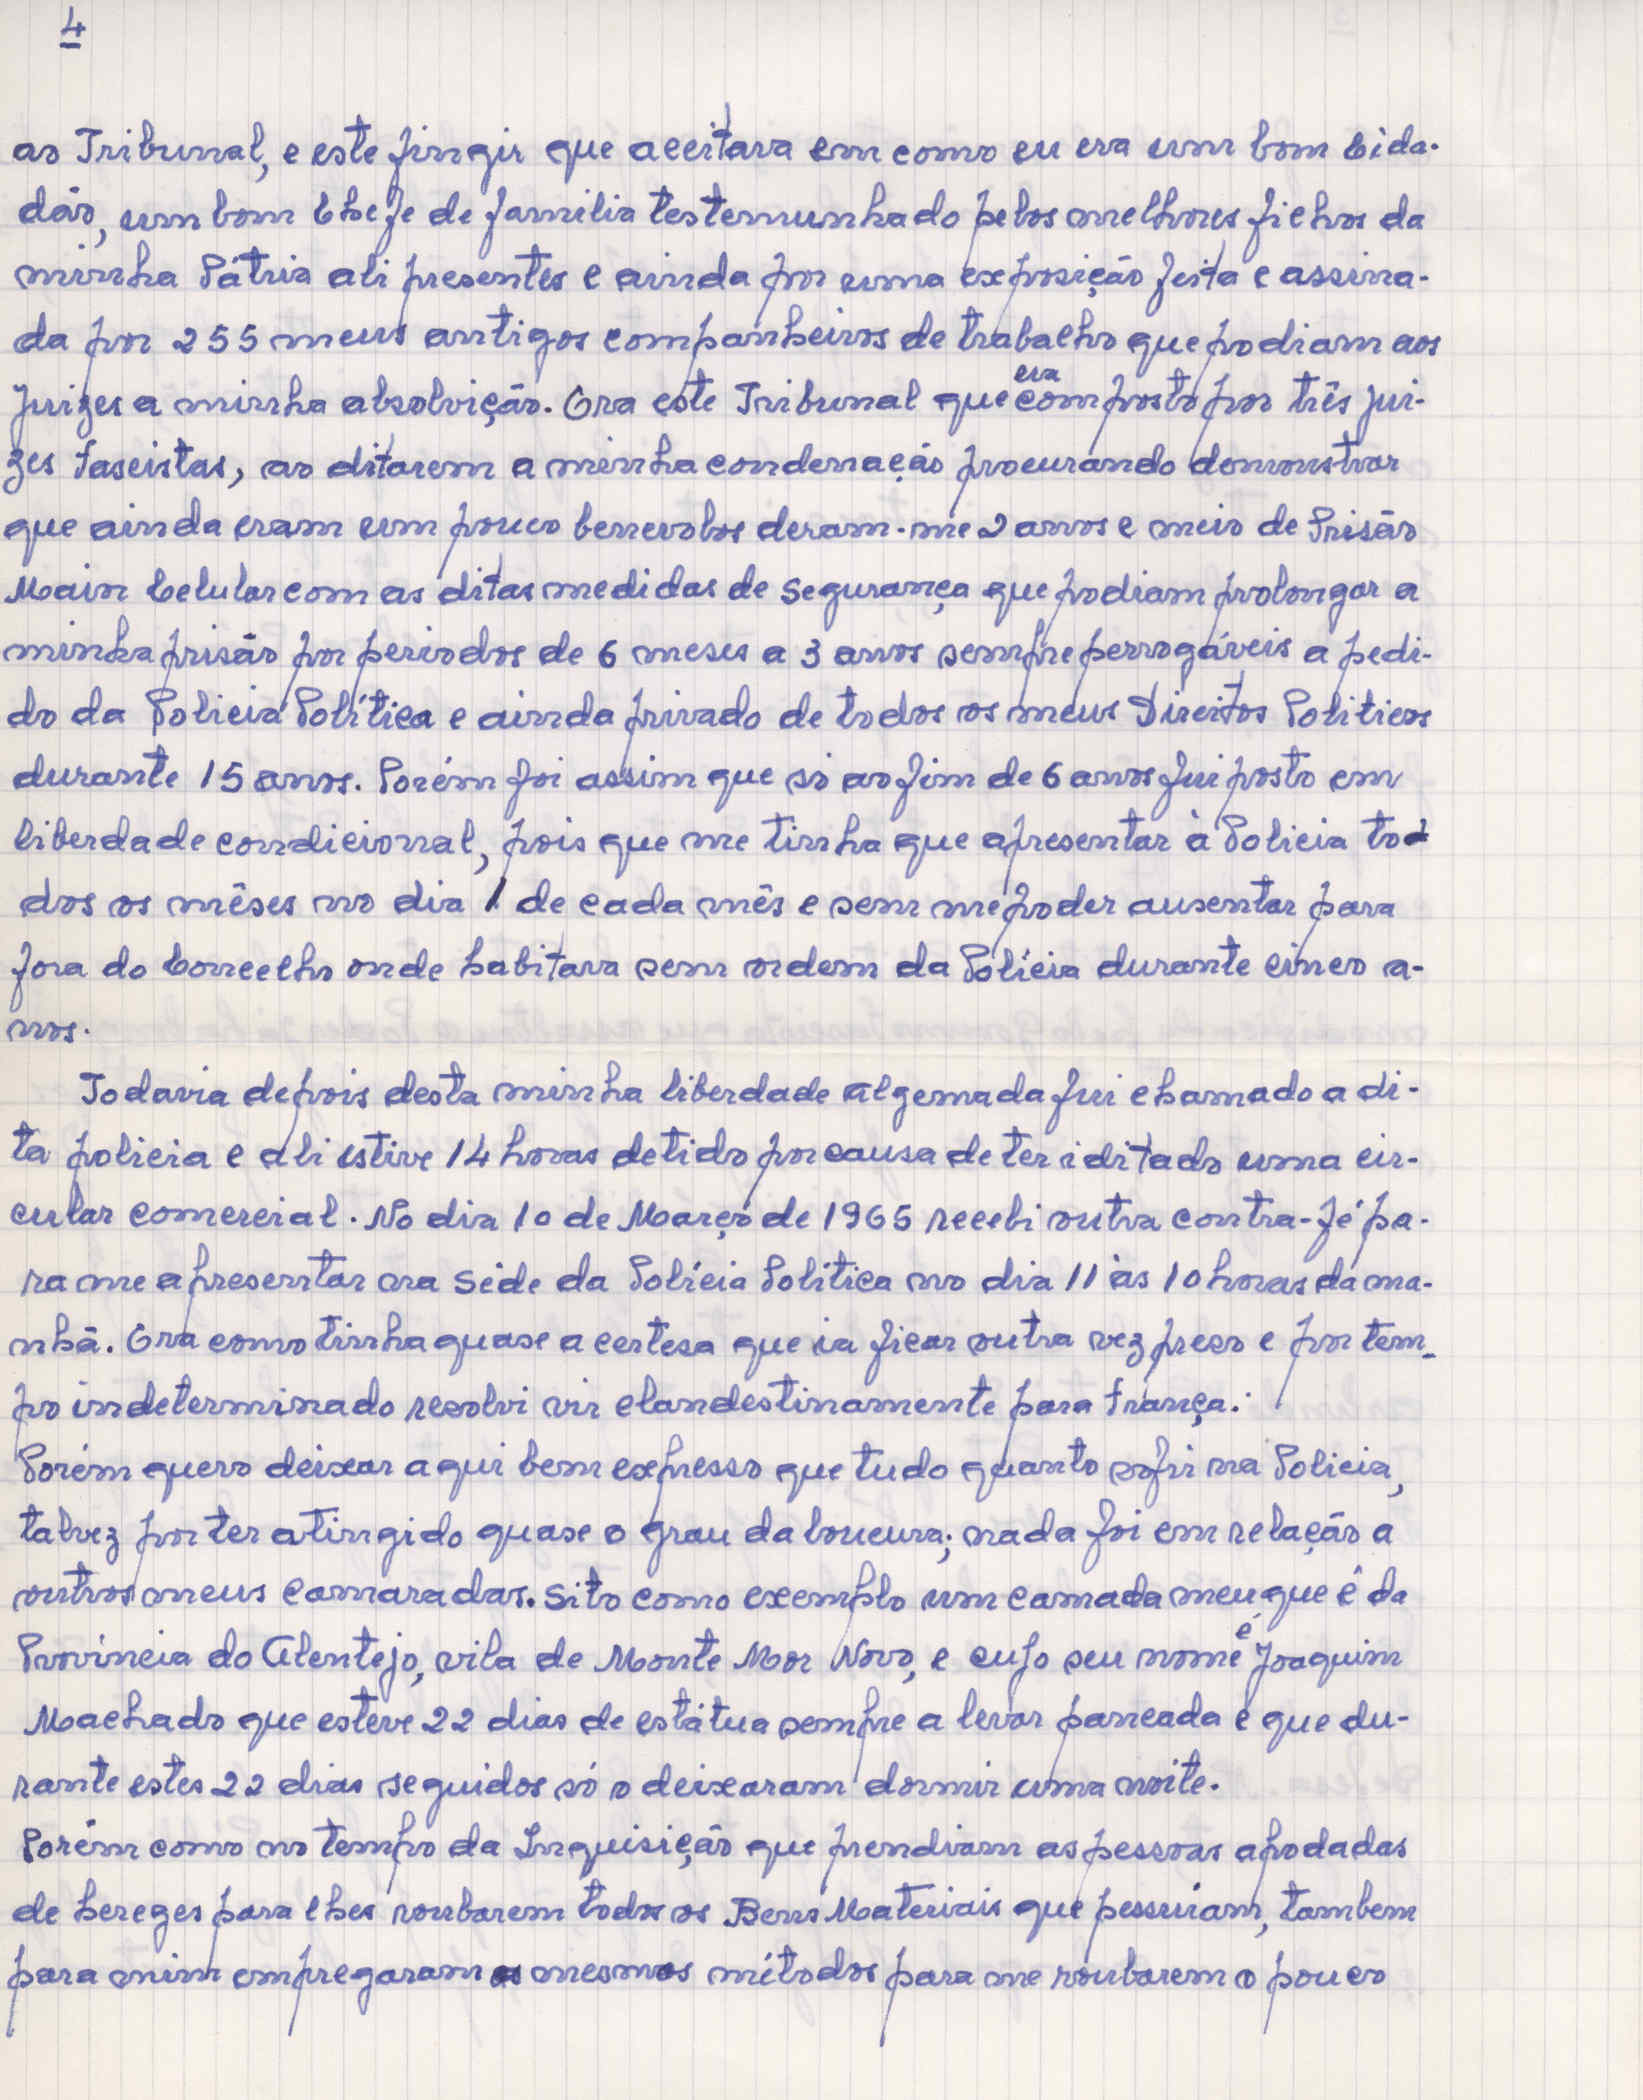 4
ao Tribunal, e este fingir que aceitava em como eu era um bom Cida-
dão, um bom Chefe de familia testemunhado pelos melhores filhos da
minha Pátria ali presentes e ainda por uma exposição feita e assina-
da por 255 meus antigos companheiros de trabalho que podiam aos
Juizes a minha absolvição. Ora este Tribunal que era composto por três jui-
zes fascistas, ao ditarem a minha condenação procurando demonstrar
que ainda eram um pouco benevolos deram-me 2 anos e meio de Prisão
Maior Celular com as ditas medidas de segurança que podiam prolongar a
minha prisão por periodos de 6 meses a 3 anos sempre perrogáveis a pedi-
do da Policia Política e ainda privado de todos os meus Direitos Politicos
durante 15 anos. Porém foi assim que só ao fim de 6 anos fui posto em
liberdade condicional, pois que me tinha que apresentar à Policia to-
dos os mêses no dia 1 de cada mês e sem me poder ausentar para
fora do Concelho onde habitava sem ordem da Polícia durante cinco a-
nos.
Todavia depois desta minha liberdade algemada fui chamado a di-
ta policia e ali estive 14 horas detido por causa de ter iditado uma cir-
cular comercial. No dia 10 de Março de 1965 recebi outra contra-fé pa-
ra me apresentar na Séde da Polícia Politica no dia 11 às 10 horas da ma-
nhã. Ora como tinha quase a certesa que ia ficar outra vez preso e por tem-
po indeterminado resolvi vir clandestinamente para França.
Porém quero deixar aqui bem expresso que tudo quanto sofri na Policia,
talvez por ter atingido quase o grau da loucura; nada foi em relação a
outros meus camaradas. Sito como exemplo um camada meu que é da
Província do Alentejo, vila de Monte Mor Novo, e cujo seu nome é Joaquim
Machado que esteve 22 dias de estátua sempre a levar pancada e que du-
rante estes 22 dias seguidos só o deixaram dormir uma noite.
Porém como no tempo da Inquisição que prendiam as pessoas apodadas
de hereges para lhes roubarem todos os Bens Materiais que pessuíam, tambem
para mim empregaram os mesmos métodos para me roubarem o pouco